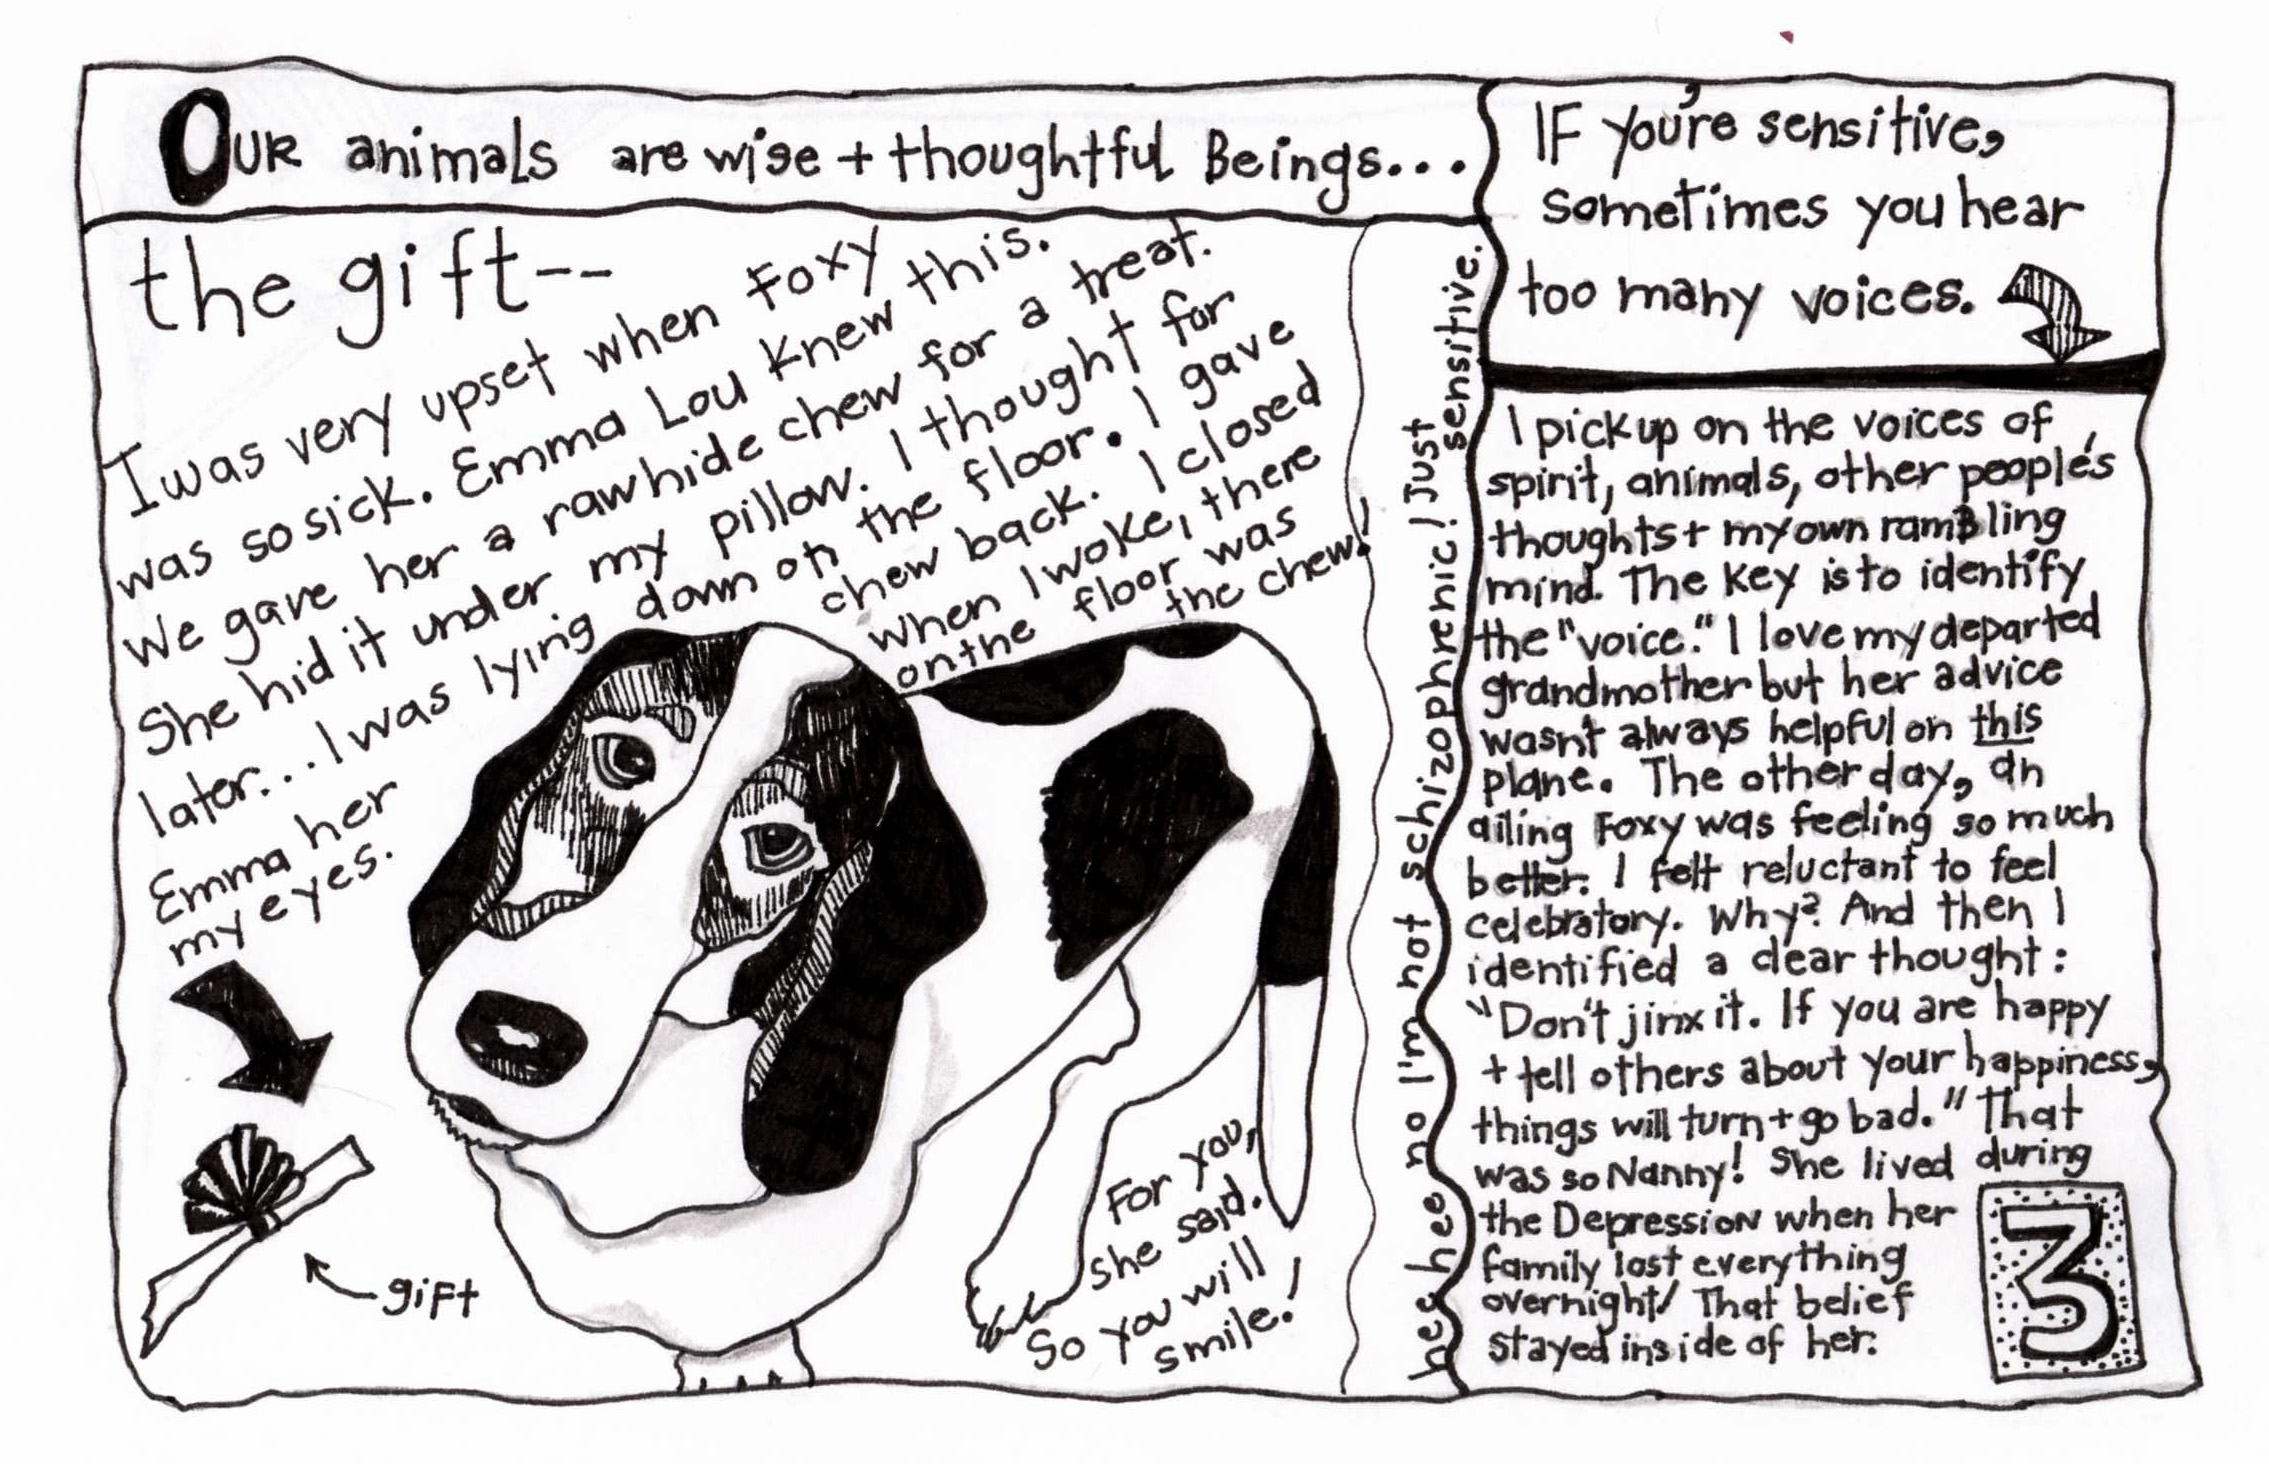 Our animals are wise + thoughtful Beings...
the gift--
I was very upset when Foxy
was so sick. Emma Lou knew this.
We gave her a rawhide chew for a treat.
She hid it under my pillow. I thought for
later... I was lying down on the floor. I gave
Emma her chew back. I closed
my eyes. When I woke, there
on the floor was
the chew!
gift
For you,
she said.
So you will
smile!
hee hee no I'm not schizophrenic! Just
sensitive.
IF you're sensitive,
sometimes you hear
too many voices.
I pick up on the voices of
spirit, animals, other people's
thoughts + my own ramBling
mind. The key is to identify
the "voice." I love my departed
grandmother but her advice
wasn't always helpful on this
plane. The other day, an
ailing Foxy was feeling so much
better. I felt reluctant to feel
celebratory. Why? And then I
identified a clear thought:
"Don't jinx it. If you are happy
+ tell others about your happiness,
things will turn + go bad." That
was so Nanny! She lived during
the Depression when her
family lost everything
overnight! That belief
stayed inside of her.
3